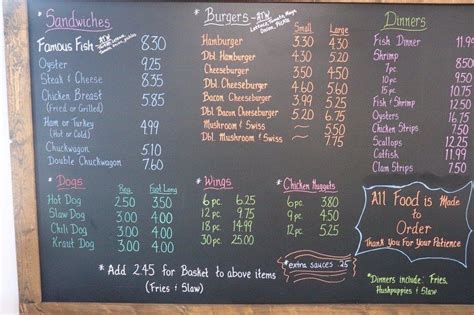 * Sandwiches
Famous Fish RTW 8.30
Oyster 9.25
Steak & Cheese 8.35
Chicken Breast 5.85
(Fried or Grilled)
Ham or Turkey 4.99
(Hot or Cold)
Chuckwagon
Double Chuckwagon
* Burgers - RTW
Lettuce, Tomato, Mayo
Onion, Pickle
Small Large
Hamburger 3.30 4.30
Dbl. Hamburger 4.50
Cheeseburger 3.50 4.50
Dbl. Cheeseburger
Bacon Cheeseburger 3.99
Dbl. Bacon Cheeseburger
Mushroom & Swiss
Dbl. Mushroom & Swiss
* Dinners
Fish Dinner 11.99
Shrimp
7pc.
10pc.
15 pc.
Fish & Shrimp
Oysters
Clam Strips
Scallops
Catfish
Clam Strips
* Dogs
Reg. Foot Long
Hot Dog 2.50 3.50
Slaw Dog 3.00 4.00
Chili Dog 3.00 4.00
Kraut Dog 3.00 4.00
* Wings
6 pc. 6.25
12 pc. 9.75
18 pc. 14.99
30 pc. 25.00
* Chicken Nuggets
6 pc. 3.80
9 pc. 4.50
12 pc. 5.25
All Food is Made
to
Order
Thank You For Your Patience
* Add 2.45 for Basket to above items
(Fries & Slaw)
*extra sauces .25
*Dinners include: Fries,
Hushpuppies & Slaw